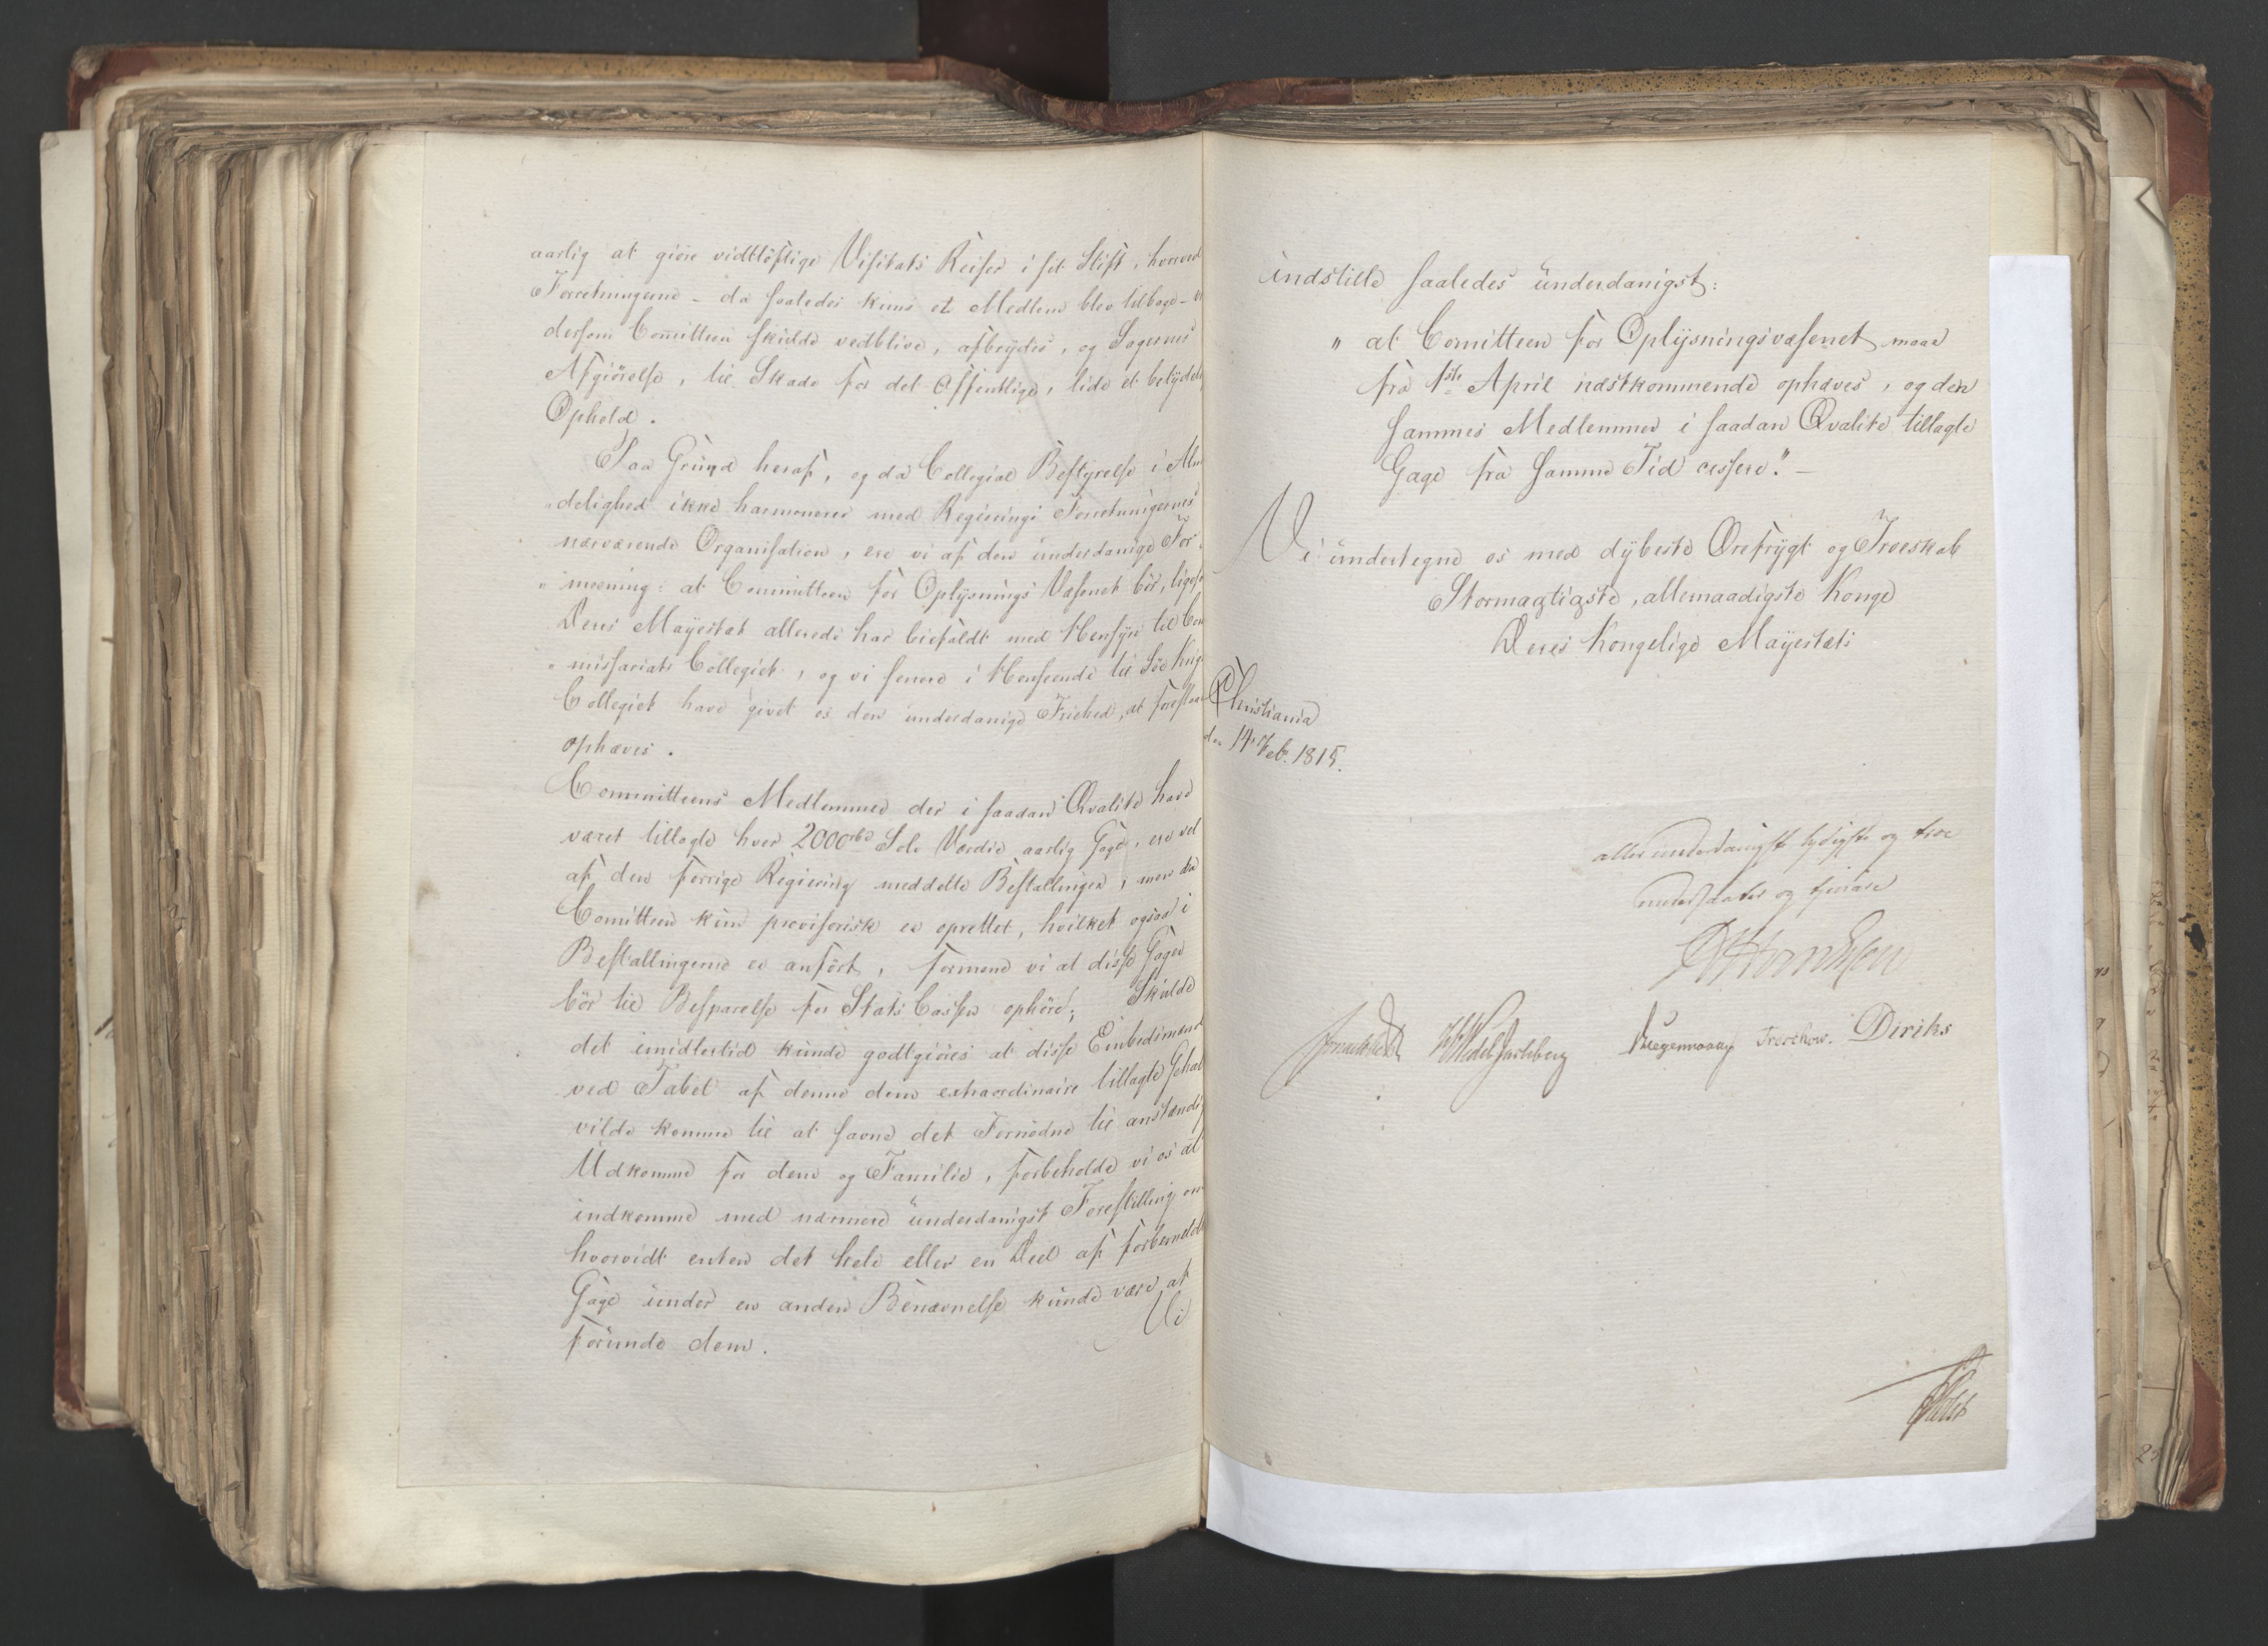 aarlig at giøre vidtløftige Visitats Reiser i sit Stift, hvorved
Forretningerne - da saaledes kuns et Medlem blev tilbage -
dersom Committeen skulde vedblive, afbrydes, og Sagernes
Afgiørelse, til Skade for det Offentlige, lide et betydeli
Ophold.
Paa Grund heraf, og da Collegial Bestyrelse i Alm
delighed ikke harmonerer med Regierings Forretningernes
nærværende Organisation, ere vi af den underdanige For
" meening: at Committeen for Oplysnings Væsenet bør, ligeso
Deres Mayestæt allerede har biefaldt med Hensyn til Com
" missariats Collegiet, og vi senere i Henseende til Söe Krigs
Collegiet have givet os den underdanige Friehed, at foreslaae
ophæves.
Committeens Medlemmer der i saadan Qvalité have
været tillagte hver 2000 rbd Sølv Værdie aarlig Gage, ere vel
af den forrige Regiering meddelte Bestallinger, men da
Comitteen kun provisorisk er oprettet, hvilket ogsaa i
Bestallingerne er anført, formene vi at disse Gager
bør til Besparelse for Stats Cassen ophøre; Skulde
det imidlertid kunde godtgiøres at disse Embedsmænd
ved Tabet af denne dem extraordinaire tillagte Gehal
vilde komme til at savne det Fornødne til anstændig
Udkomme for dem og Familie, forbeholde vi os at
indkomme med nærmere underdanigst Forestilling om
hvorvidt enten det hele eller en Deel af forbemeldte
Gage under en anden Benævnelse kunde være at
forunde dem.
Vi
indstille saaledes underdanigst:
" at Comitteen for Oplysningsvæsenet maae
fra 1ste April næstkommende ophæves, og den
sammes Medlemmer i saadan Qvalité tillagte
Gage fra samme Tid cessere." -
Vi undertegne os med dybeste Ærefrygt og Troeskab
Stormægtigste, allernaadigste Konge
Deres Kongelige Mayestæts
Christiania
den 14 Feb. 1815.
allerunderdanigst lydigste og troe
undersaatter og tienere
Wedel Jarlsberg Hegermann Treschow. Diriks
Holst